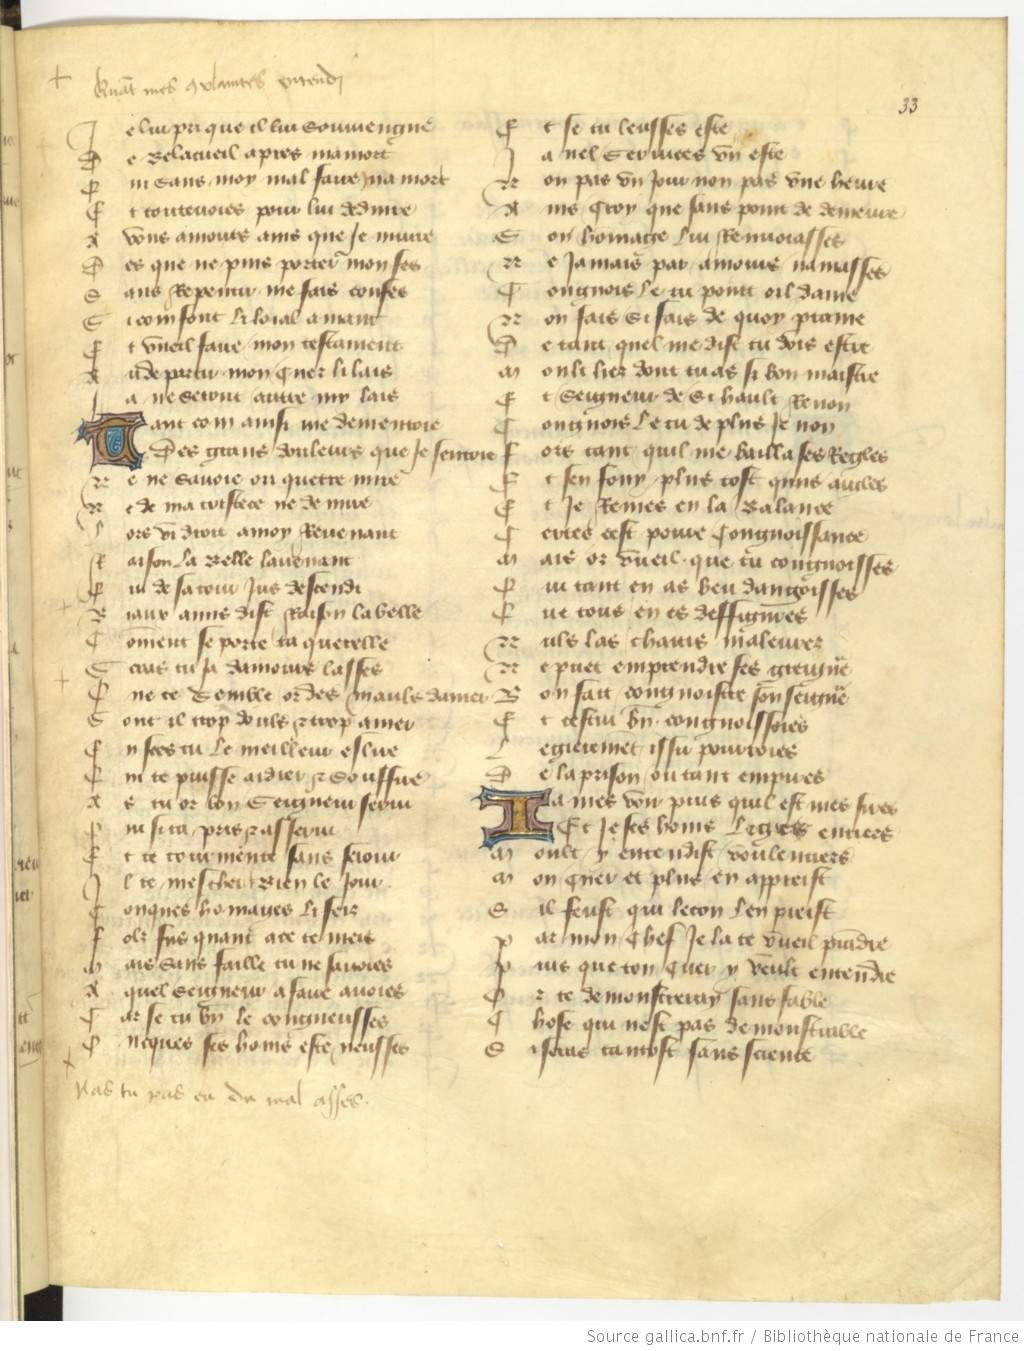 33
Quāt mes cōplaintes entendi
Je lui pri que il lui souviengne
De Belacueil apres ma mort
Qui sans moy mal faire ma mort
Et toutevoies pour lui deduire
A vous amours ains que je muire
Des que ne puis porter mon fes
Sans Repentir me fais confes
Si com font li loial amant
Et vueil faire mon testament
Au departir mon cuer li lais
Ja ne seront autre my lais
Tant com ainsi me dementoie
Des grans douleurs que je sentoie
Ne ne savoie ou querre mire
Ne de ma tristece ne de mire
Lors vi droit a moy Revenant
Raison la Belle lavenant
Qui de sa tour jus descendi
Biaux amis dist Raison la belle
Coment se porte ta querelle
Seras tu ja damours lasses
Que te Semble or des maulx damer
Sont il trop doulx ⁊ trop amer
En sces tu le meilleur eslire
Qui te puisse aidier ⁊ souffire
As tu or bon Seigneur servi
Qui si ta pris ⁊ asservi
Et te tourmente sans seiour
Il te meschei Bien le jour
Conques homages li feis
Folx fus quant a ce te meis
Mais sans faille tu ne savoies
A quel Seigneur afaire avoies
Car se tu bn le congneusses
Onques ses homs este neusses
Nas tu pas eu du mal asses.
Et se tu leusses este
Ja nel services vn este
Non pas vn jour non pas vne heure
Ains croy que sans point de demeure
Son homage lui Renvoiasses
Ne jamais par amours namasses
Congnois le tu point oil dame
Non fais Si fais de quoy p̄ ame
De tant quel me dist tu dois estre
Moult liez dont tu as si bon maistre
Et Seigneur de Si hault Renon
Congnois le tu de plus Je non
Fors tant quil me bailla ses Regles
Et sen fouy plus tost quns aigles
Et je Remes en la Balance
Certes cest povre Congnoissance
Mais or vueil que tu congnoisses
Qui tant en as beu dangoisses
Que tous en es deffigures
Nuls las chaitis maleurez
Ne puet emprendre fes greigneur
Bon fait congnoistre son seigneur
Et cestui bn congnoissoies
Legierement issir pourroies
De la prison ou tant empires
Dame voir puis quil est mes sires
Et je ses homs Liges entiers
Moult y entendist voulentiers
Mon cuer et plus en appreist
Sil feust qui lecon len preist
Par mon Chef je la te vueil prendre
Puis que ton cuer y veult entendre
Or te demonstreray sans fable
Chose qui nest pas demonstrable
Si seras tantost sans science